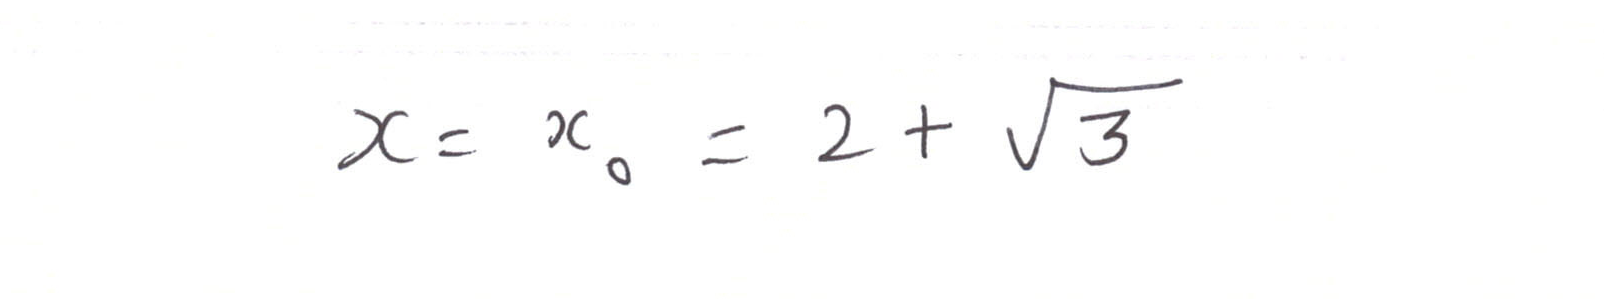 x = x₀ = 2 + √3